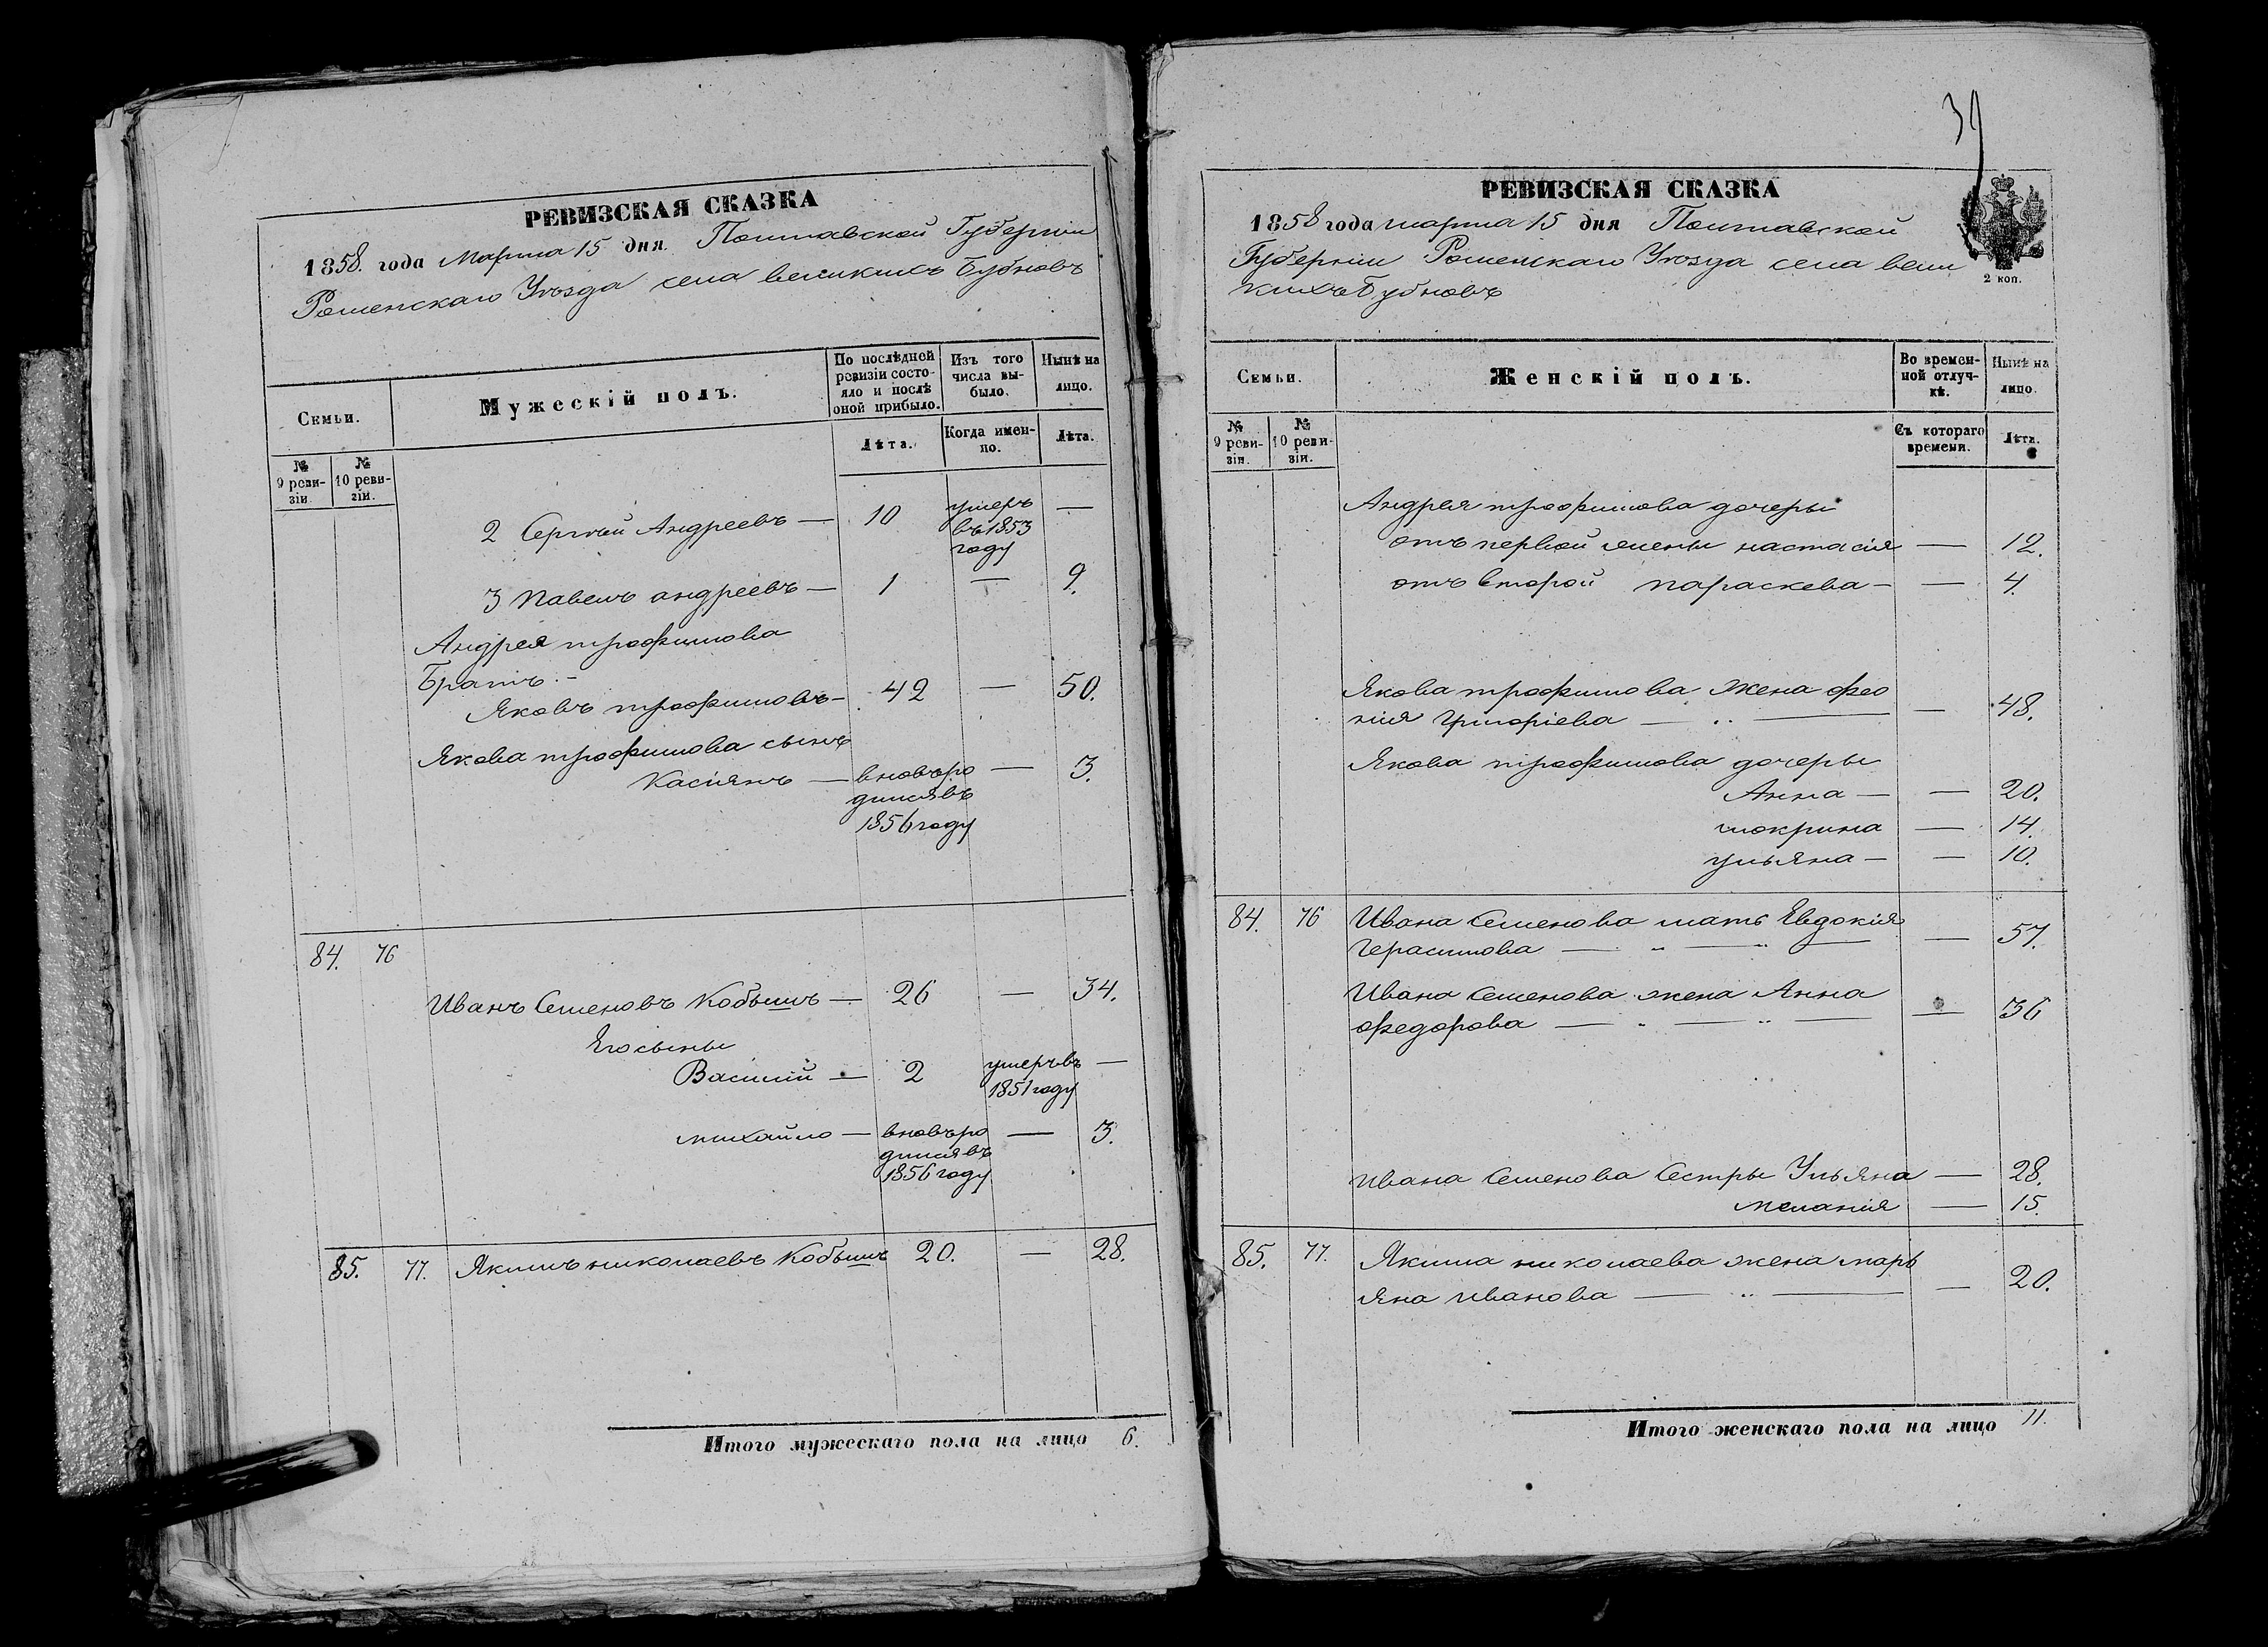 РЕВИЗСКАЯ СКАЗКА
1858. года Марта 15 дня Полтавской Губерніи
Роменскаго Уѣзда села великихъ Бубновъ
Семьи.
Мужескій полъ.
По послѣдней ревизіи состояло и послѣ оной прибыло.
Изъ того числа выбыло.
Нынѣ на лицо.
№ 9 ревизіи.
№ 10 ревизіи.
Лѣта.
Когда именно.
Лѣта.
2 Сергѣй Андреевъ — 10 умеръ —
въ 1853
году
3 Павелъ андреевъ — 1 — 9.
Андрея трофимова
Братъ. -
Яковъ трофимовъ — 42 — 50.
Якова трофимова сынъ
Касіянъ — вновь ро — 3.
дился въ
1856 году
84. 76
Иванъ Семеновъ Кобышъ — 26 — 34.
Его сыны
Василій — 2 умеръ въ —
1851 году
михайло — вновь ро — 3.
дился въ
1856 году
85. 77. Якимъ николаевъ Кобышъ 20. — 28.
Итого мужескаго пола на лицо 6.
39
РЕВИЗСКАЯ СКАЗКА
1858 года марта 15 дня Полтавской
Губерніи Роменскаго Уѣзда села вели
кихъ Бубновъ
2 коп.
Семьи.
Женскій полъ.
Во временной отлучкѣ.
Нынѣ на лицо.
№ 9 ревизіи.
№ 10 ревизіи.
Съ котораго времени.
Лѣта.
Андрея трофимова дочеры
отъ первой жены настасія — 12.
отъ второй параскева — — 4.
Якова трофимова жена фео
нія григоріева — — 48.
Якова трофимова дочеры
Анна — — 20.
мокрина — 14.
ульяна — — 10.
84. 76 Ивана Семенова мать Евдокія
герасимова — — 57.
Ивана Семенова жена Анна
федорова — — 36
Ивана Семенова Сестры Ульяна — 28.
меланія — 15.
85. 77. Якима николаева жена марь
яна иванова — — 20.
Итого женскаго пола на лицо 11.